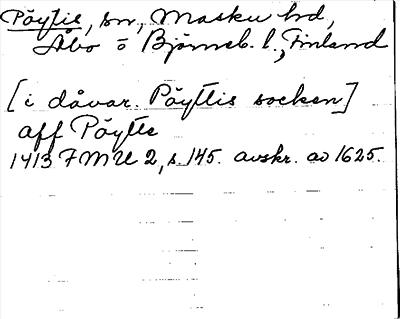 Pöytis, sn, Masku hd,
Åbo o Björneb. l., Finland
[i dåvar. Pöyttis socken]
aff Pöytte
1413 FMU 2, s. 145. avskr. av 1625.